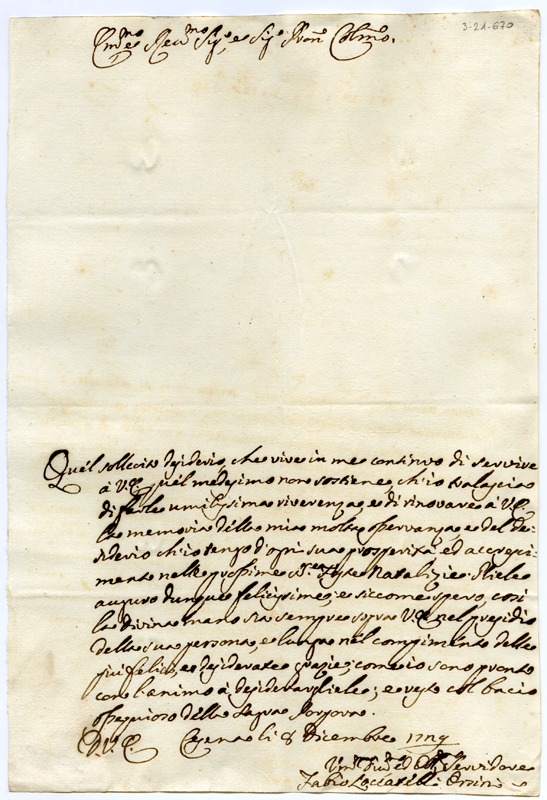 3-21-670
Em̃o e Reũmo Sigre, e Sigre Pron̄ Colmo.
Quel sollecito desiderio, che vive in me continuo di servire
à V.E. quel medesimo non sostiene, ch'io tralasciao
di farle umilissima riverenza, e di rinovare à V.E.
la memoria della mia molta osservanza, e del de-
siderio ch'io tengo d'ogni sua prosperità ed accresci-
mento nelle prossime SS.me Feste Natalizie. Gliele
auguro dunque felicissime, e siccome spero, così
la Divina mano sia sempre sopra V.E. nel presidio
della sua persona, e lunga nel compimento delle
più felici, e desiderate grazie, come io sono pronto
con l'animo à desiderargliele; e resto col bacio
ossequioso della Sagra Porpora.
D.V.E. Cesena li 8 Dicembre 1729
Umo Divo ed Obbmo Servidore
Fabio Locatelli Orsini